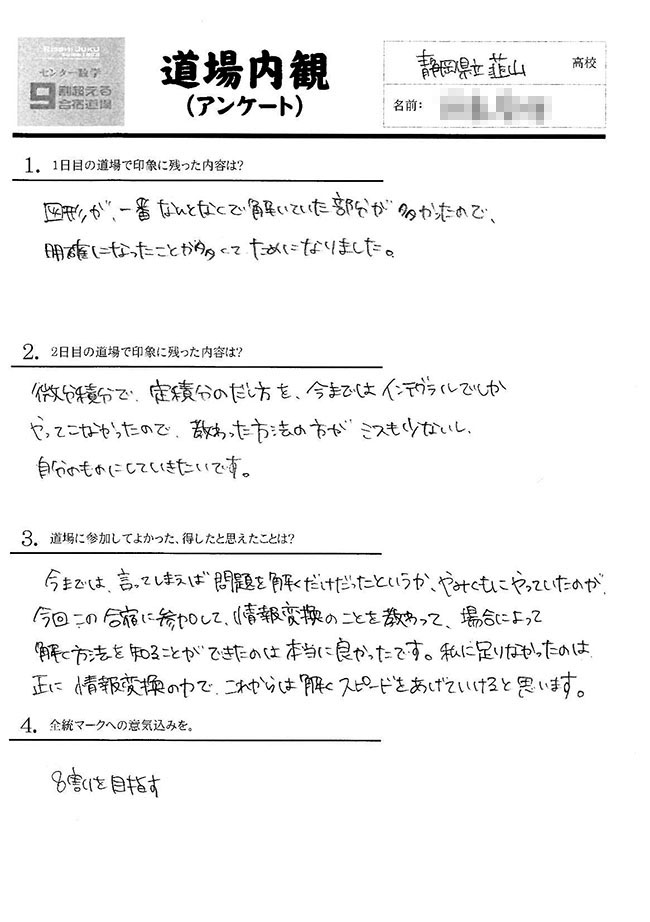 センター数学
9割超える
合宿道場
道場内観
(アンケート)
静岡県立韮山 高校
名前:
1. 1日目の道場で印象に残った内容は?
図形が、一番なんとなくで解いていた部分が多かったので、
明確になったことが多くてためになりました。
2. 2日目の道場で印象に残った内容は?
微分積分で、定積分のだし方を、今まではインテグラルでしか
やってこなかったので、教わった方法の方がミスも少ないし、
自分のものにしていきたいです。
3. 道場に参加してよかった、得したと思えたことは?
今までは、言ってしまえば問題を解くだけだったというか、やみくもにやっていたのが、
今回この合宿に参加して、情報変換のことを教わって、場合によって
解く方法を知ることができたのは本当に良かったです。私に足りなかったのは、
正に情報変換の力で、これからは解くスピードをあげていけると思います。
4. 全統マークへの意気込みを。
8割りを目指す